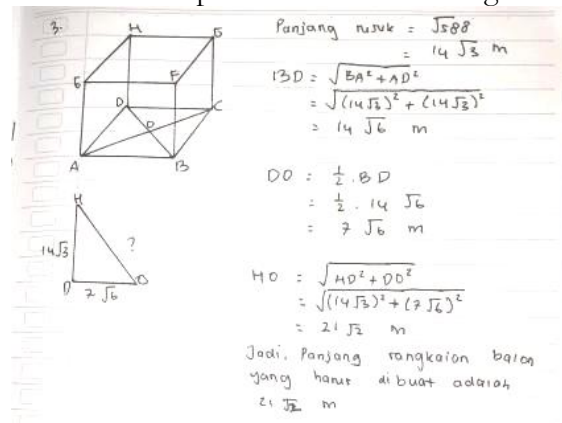 3.
H
G
E
F
D
C
O
A
B
H
14√3
?
D
7√6
O
Panjang rusuk = √588
= 14√3 m
BD = √BA² + AD²
= √(14√3)² + (14√3)²
= 14√6 m
DO = 1/2 . BD
= 1/2 . 14 √6
= 7 √6 m
HO = √HD² + DO²
= √(14√3)² + (7√6)²
= 21 √2 m
Jadi, Panjang rangkaian balon
yang harus dibuat adalah
21 √2 m